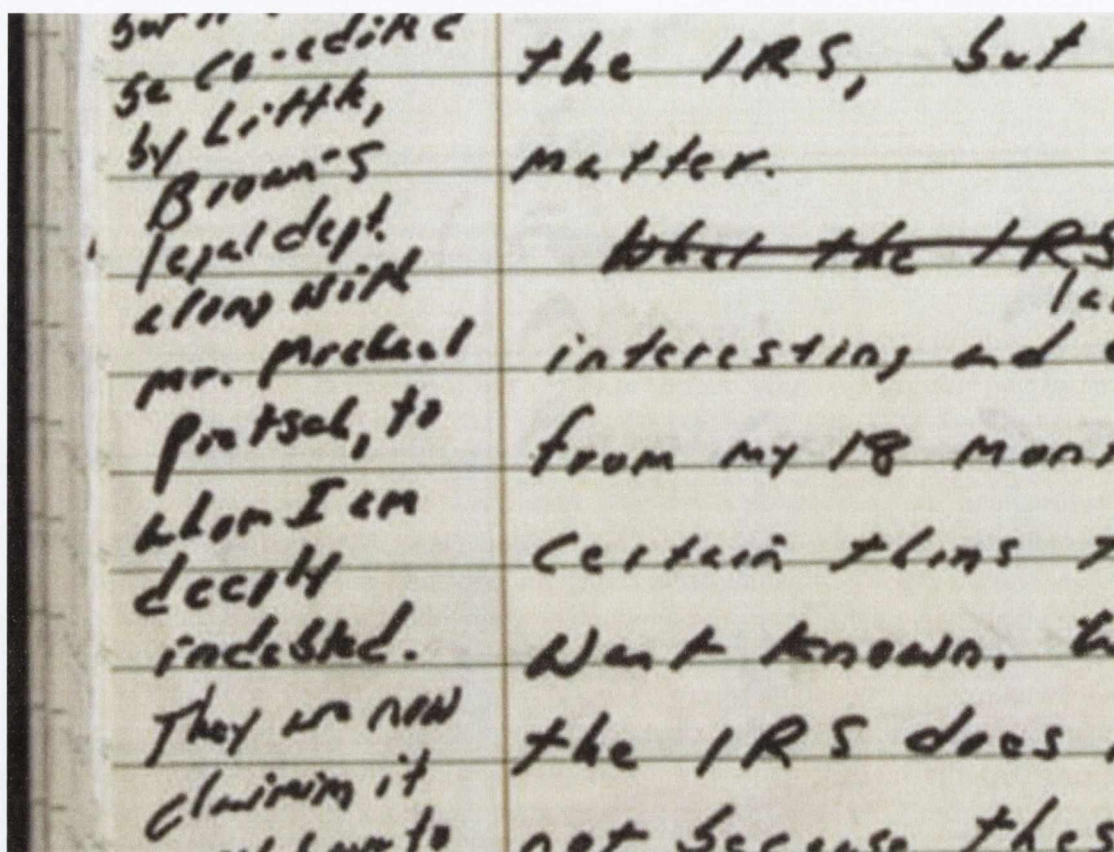 be co-edited
by Little,
Brown's
legal dept.
along with
mr. Michael
Pietsch, to
whom I am
deeply
indebted.
They are now
claiming it
have to
the IRS, but
matter.
What the IRS
interesting and
from my 18 mon
certain things
want known.
the IRS does
not because thes